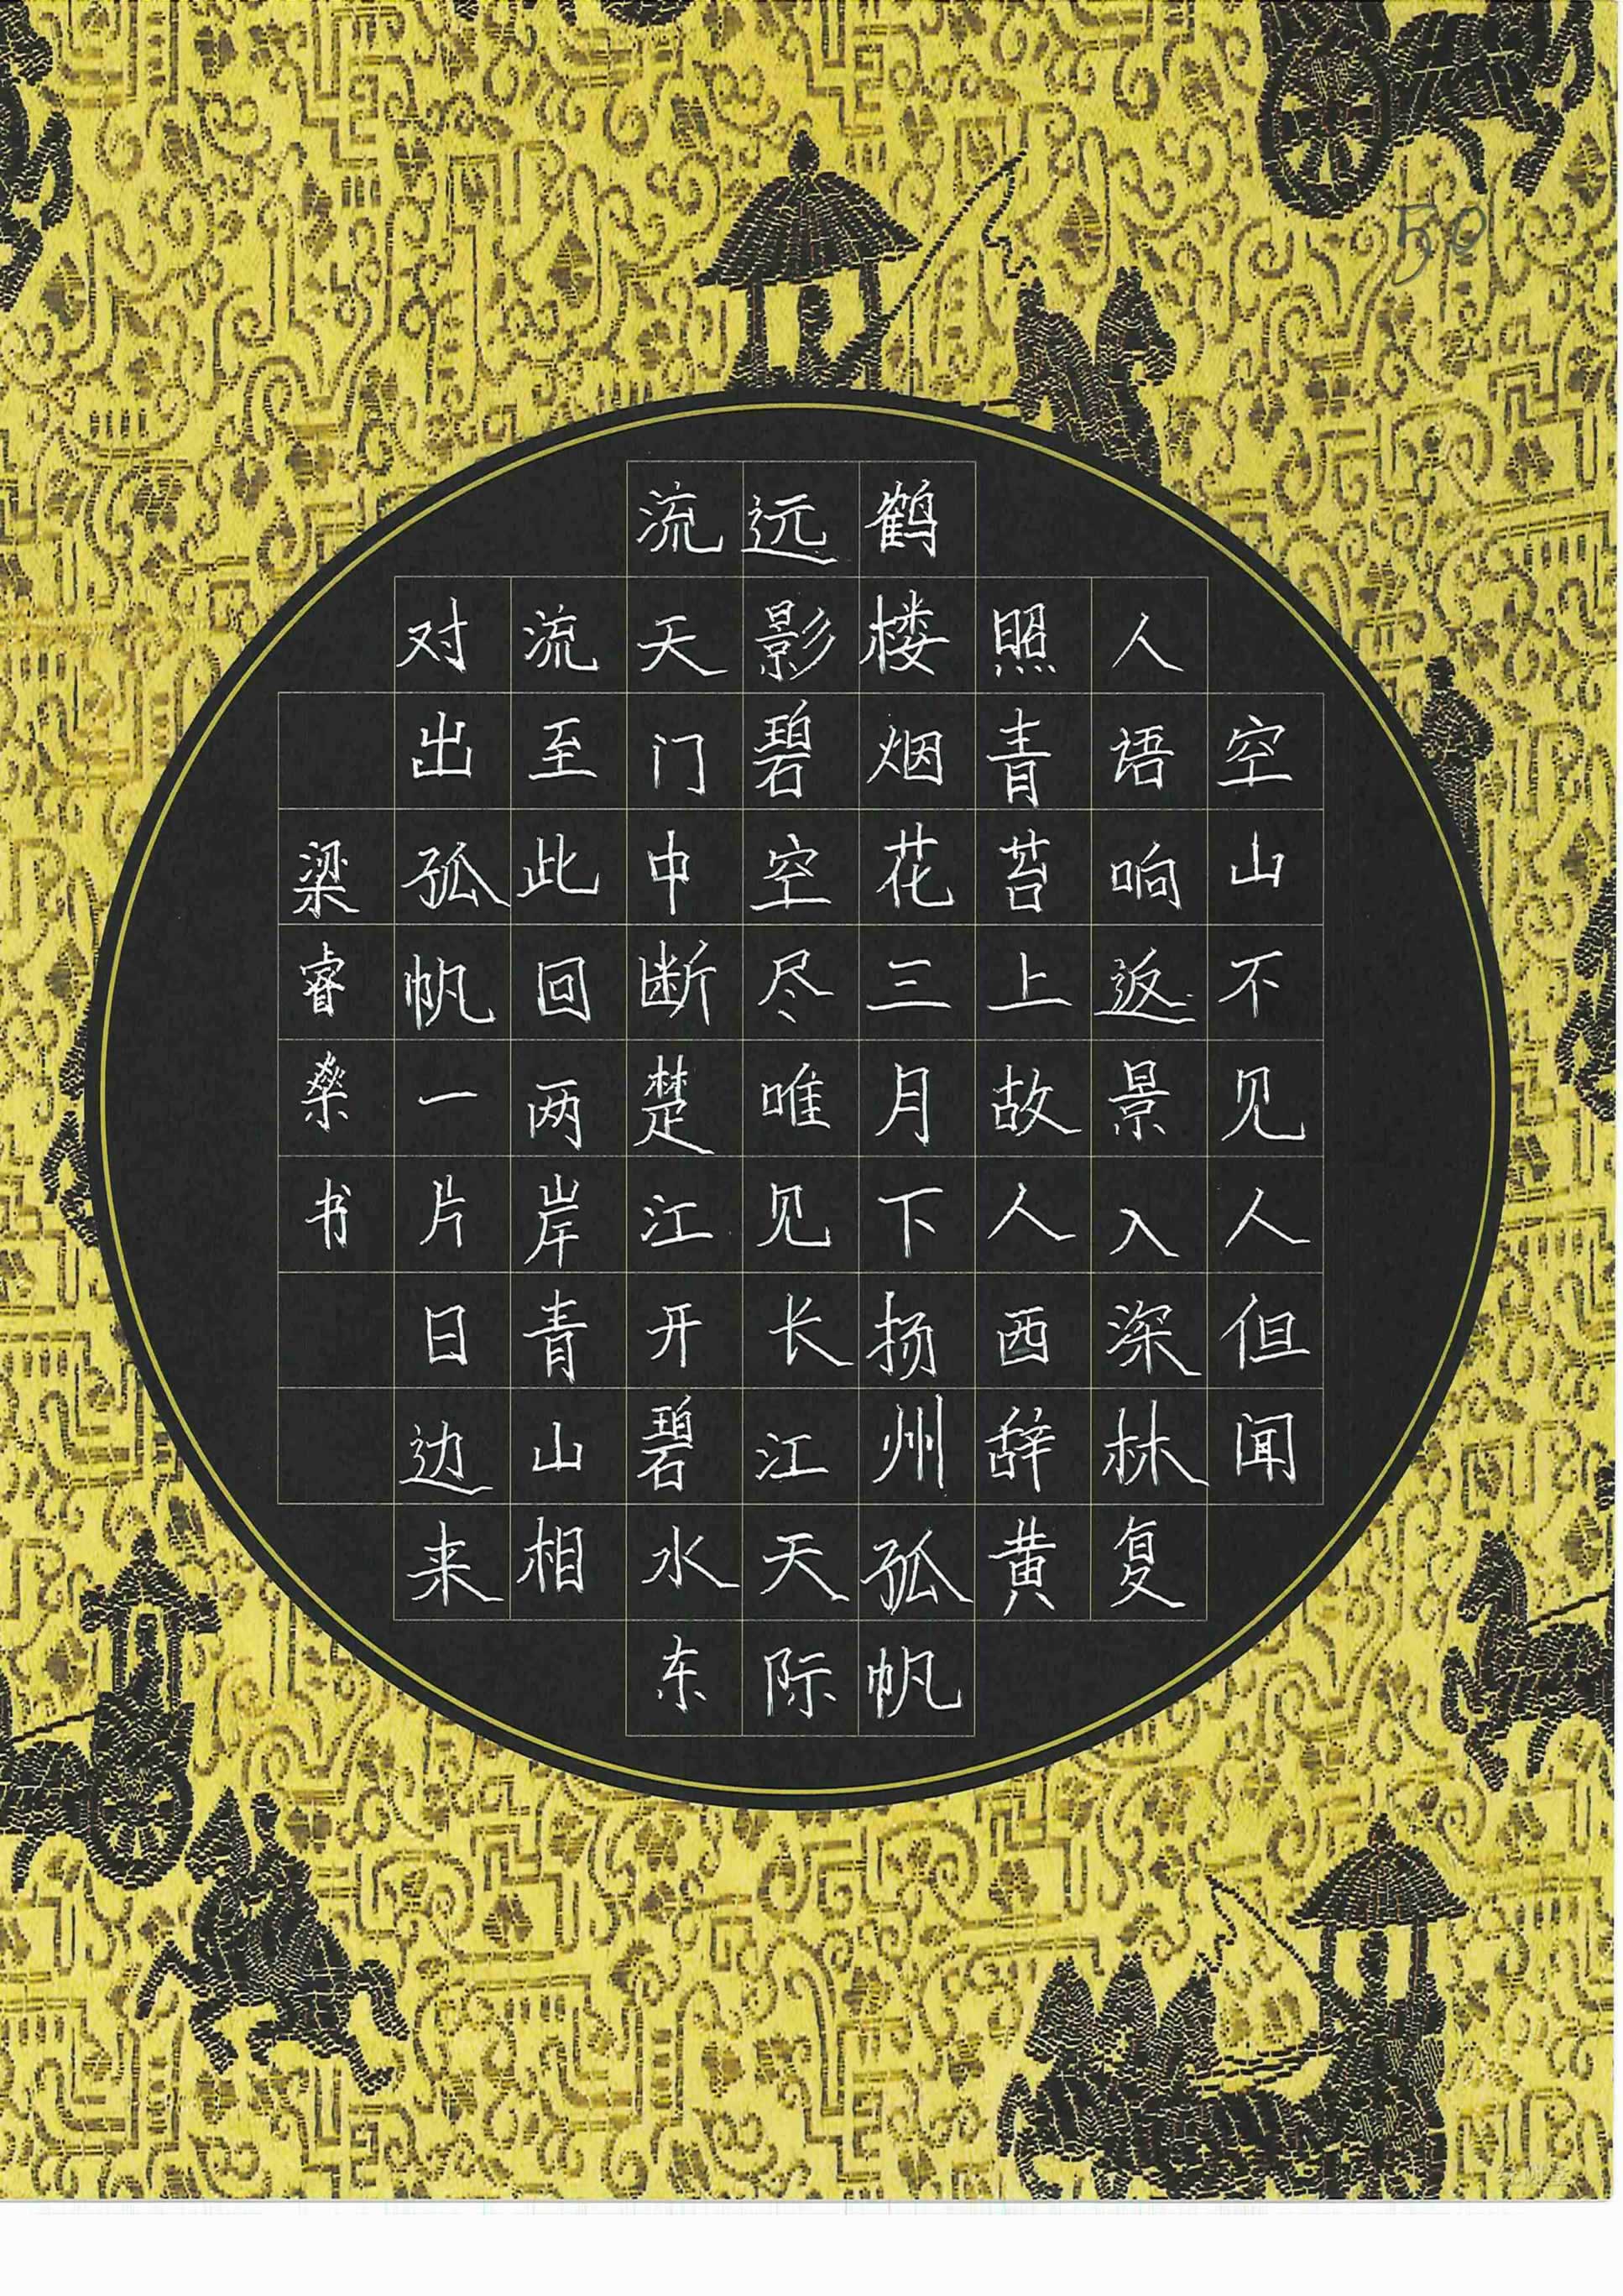 50
空山不见人但闻
人语响返景入深林复
照青苔上故人西辞黄
鹤楼烟花三月下扬州孤帆
远影碧空尽唯见长江天际
流天门中断楚江开碧水东
流至此回两岸青山相
对出孤帆一片日边来
梁睿燊书